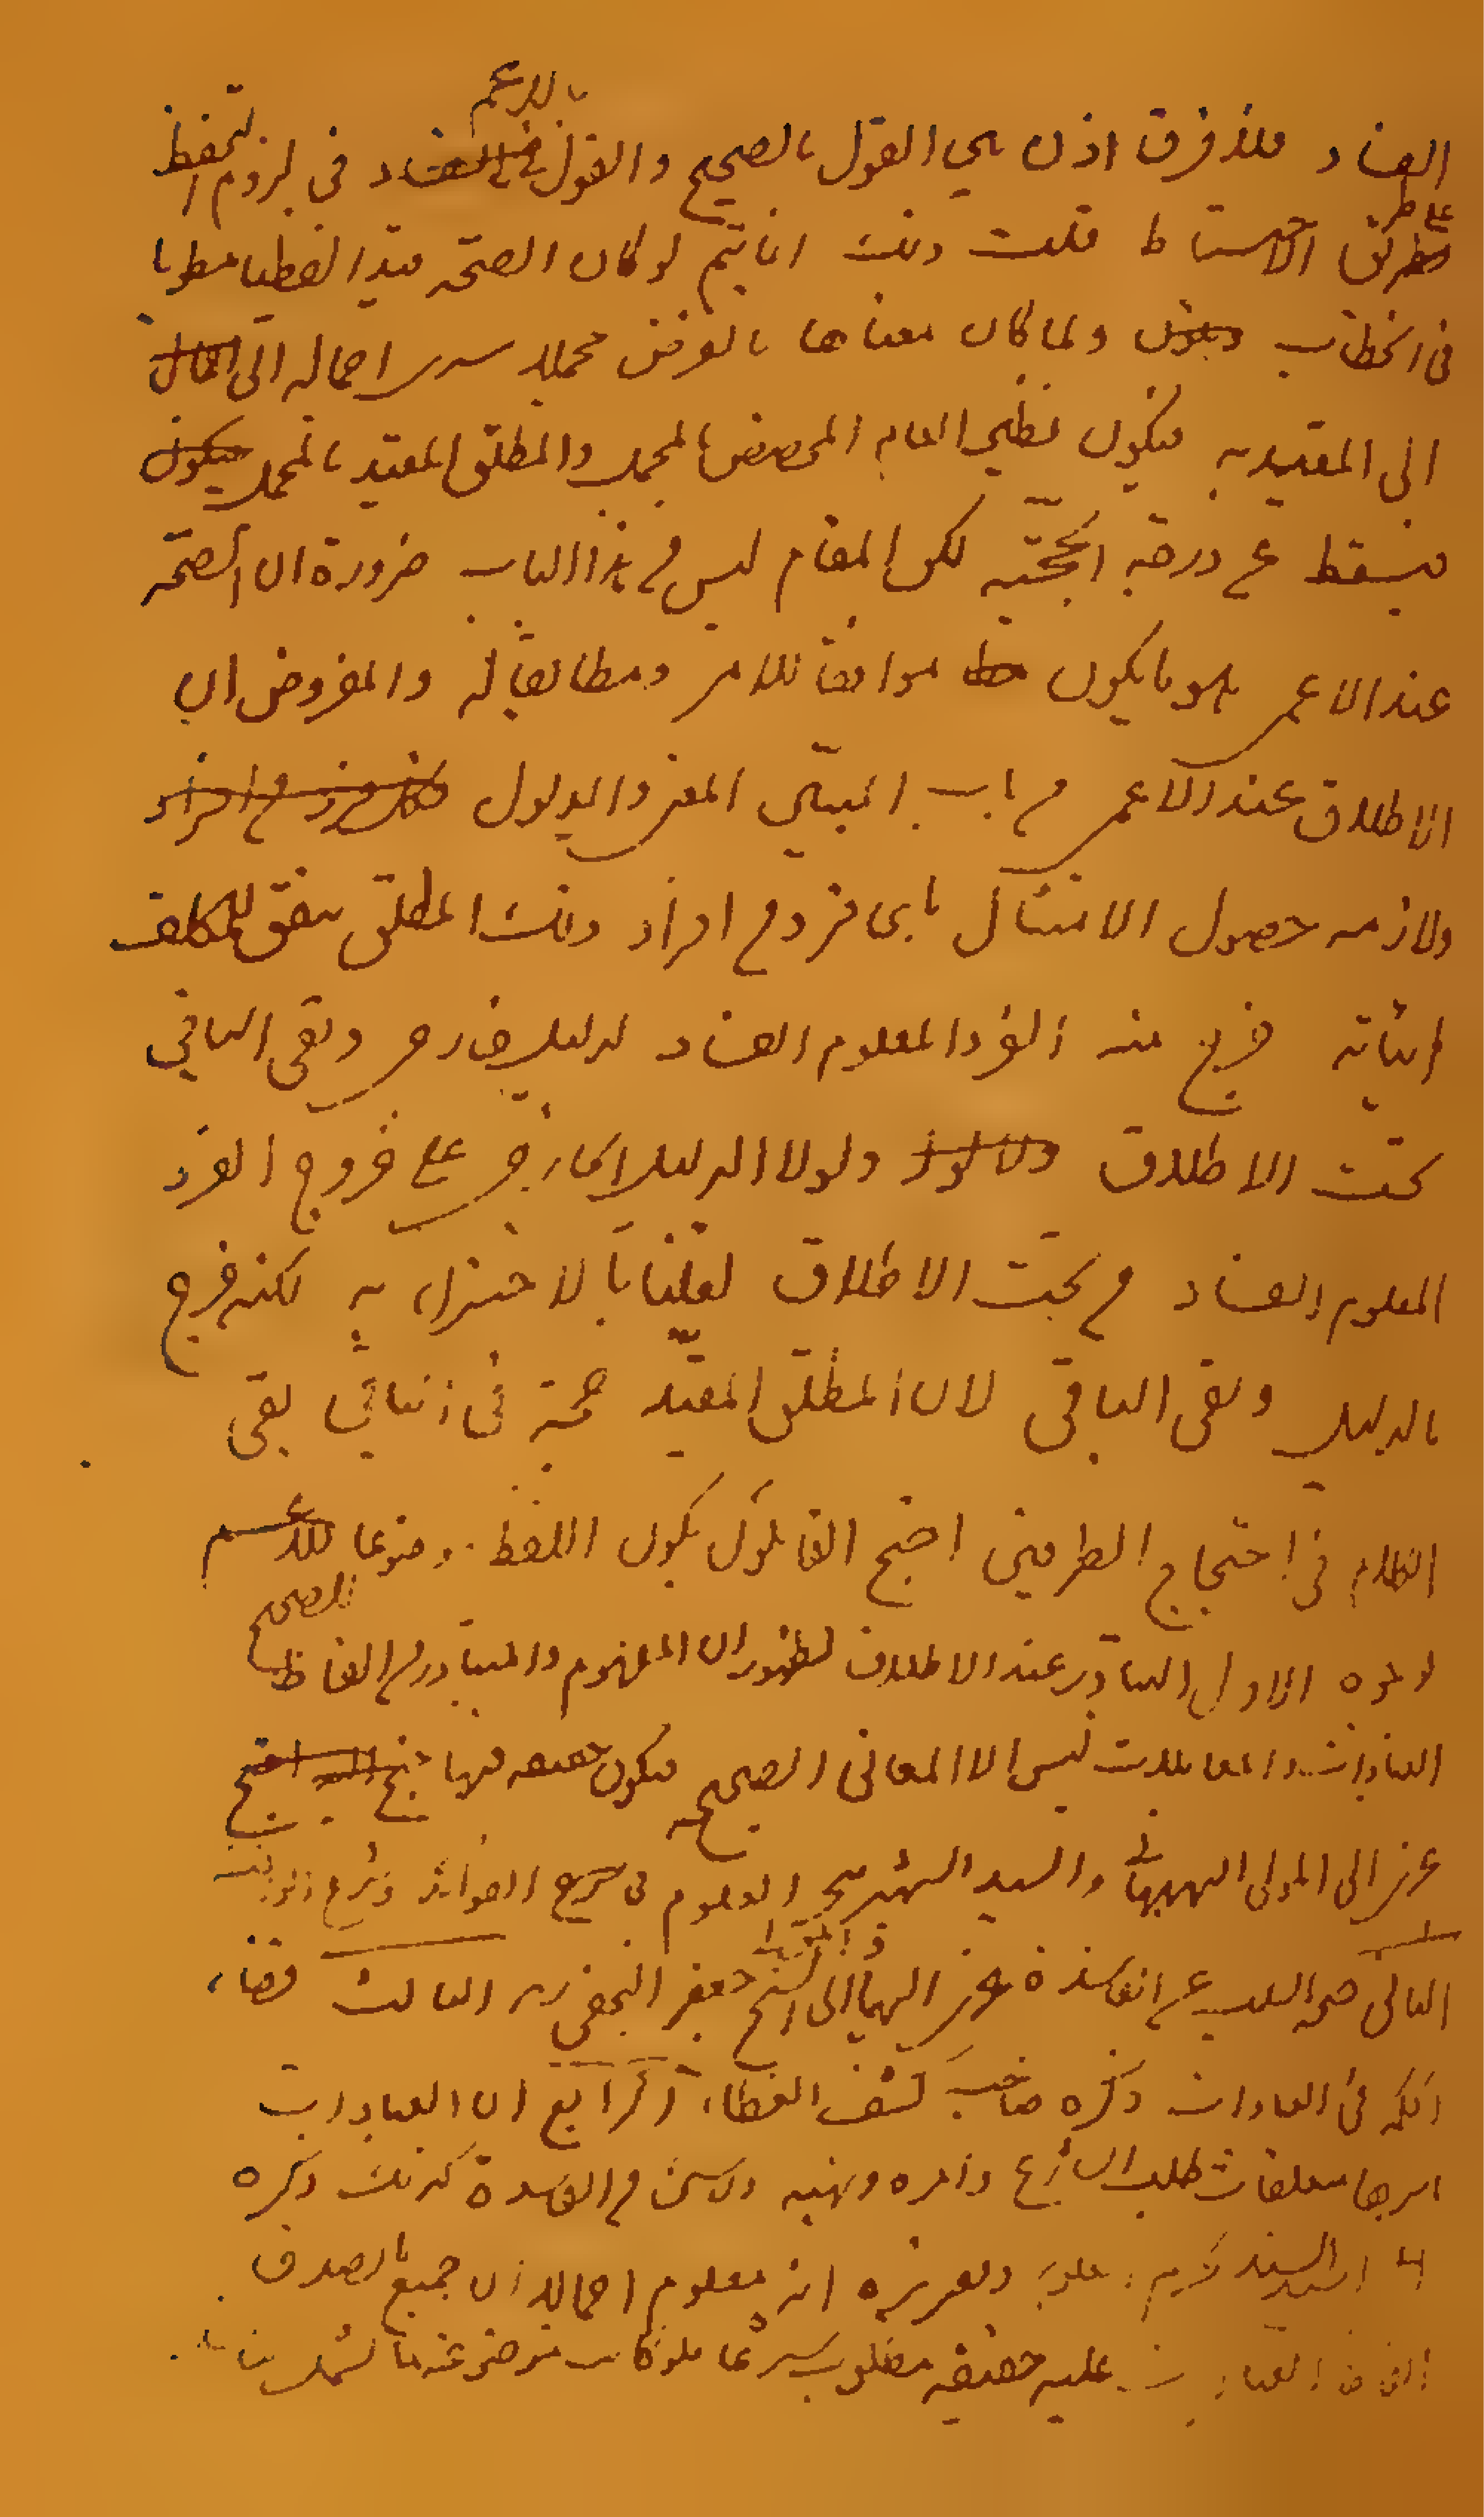 بالاعم
الفساد فلا فرق اذن بين القول بالصحيح والقول في الفساد في لزوم التحفظ
على
بطريق الاحتياط قلت ذلك انما يتم لو كان الصحة قيدا لفظيا مطويا
في الخطاب ويقول ولما كان معناها بالعرض مجملا سرى اجماله الى اجمال
الى المقيد به فيكون نظير العام المخصص بالمجمل والمطلق المقيد بالمجمل فيكون
فيسقط عن درجة الحجية لكن المقام ليس من هذا الباب ضرورة ان الصحة
عند الاعمى هو ما يكون موافقا للامر ومطابقا له والمفروض ان
الاطلاق عند الاعمى من باب المبين المعنى والمدلول فكل فرد من افراد
ولازمه حصول الامتثال باى فرد من افراد ذلك المطلق يتفق للمكلف
اتيانه خرج منه الفرد المعلوم الفساد لدليل خارجى وبقى الباقى
تحت الاطلاق ولا لولا ولولا الدليل الخارجى على خروج الفرد
المعلوم الفساد من تحت الاطلاق لقلنا بالاجتزاء به لكنه خرج
بالدليل وبقى الباقى لان المطلق المقيد حجة في الباقى بقى
الكلام في احتجاج الطرفين احتج القائلون بكون اللفظ موضوعا للاعم
للصحيح
لوجوه الاول التبادر عند الاطلاق لظهور ان المفهوم والمتبادر من الفاظ
العبادات والمعاملات ليس الا المعانى الصحيحه فيكون حقيقه فيها احتج
عزى الى المولى البهبهانى والسيد الشهير ببحر العلوم في شرح الفوائد
الثانى صحة السلب عن الفاسدة عزى ايها الى الشيخ جعفر النجفى ره الثالث قضاء
الحكمة فى العبادات ذكره صاحب كشف الغطاء الرابع ان العبادات
اسرها متعلقات طلب الشارع وامره ونهيه ولا شئ من الفاسدة كذلك ذكره
السيد وتقريره انه معلوم اجمالا ان جميع ما يصدق
عليه حقيقه مطلوب شرعا فلو كانت موضوعة لما يشمل